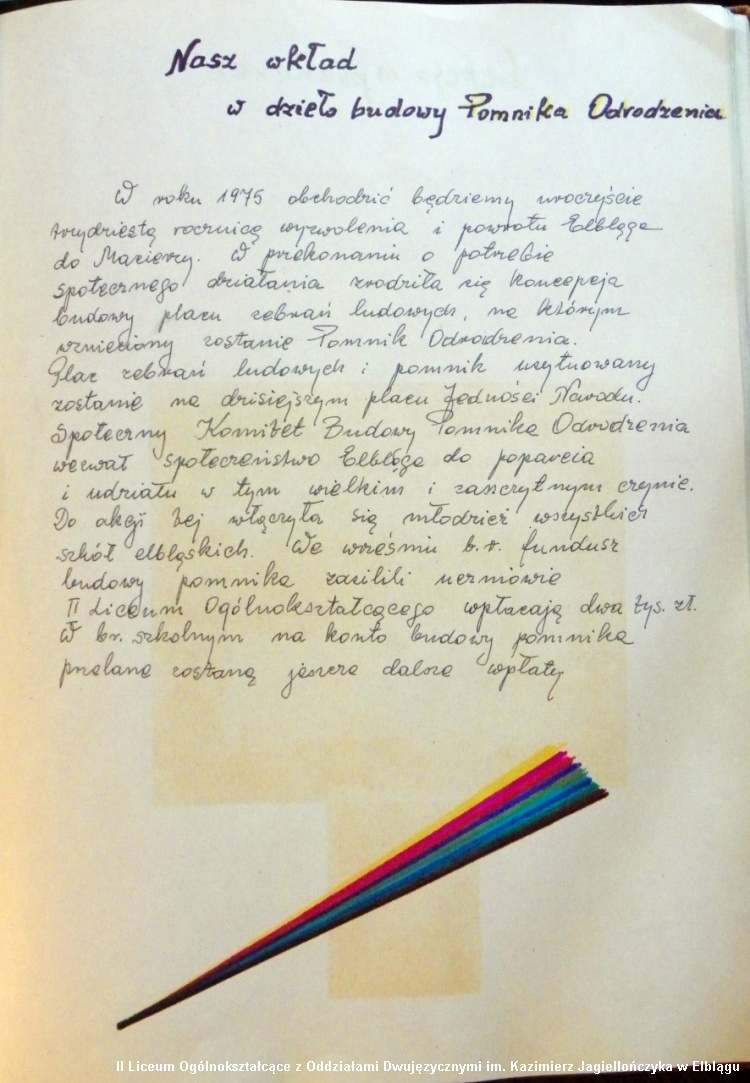 Nasz wkład
w dzieło budowy Pomnika Odrodzenia
W roku 1975 obchodzić będziemy uroczyście
trzydziestą rocznicę wyzwolenia i powrotu Elbląga
do Macierzy. W przekonaniu o potrzebie
społecznego działania zrodziła się koncepcja
budowy placu zebrań ludowych, na którym
wzniesiony zostanie Pomnik Odrodzenia.
Plac zebrań ludowych i pomnik usytuowany
zostanie na dzisiejszym placu Jedności Narodu.
Społeczny Komitet Budowy Pomnika Odrodzenia
wezwał społeczeństwo Elbląga do poparcia
i udziału w tym wielkim i zaszczytnym czynie.
Do akcji tej włączyła się młodzież wszystkich
szkół elbląskich. We wrześniu b.r. fundusz
budowy pomnika zasilili uczniowie
II Liceum Ogólnokształcącego wpłacają dwa tys. zł.
W br. szkolnym na konto budowy pomnika
przelane zostaną jeszcze dalsze wpłaty
II Liceum Ogólnokształcące z Oddziałami Dwujęzycznymi im. Kazimierz Jagiellończyka w Elblągu